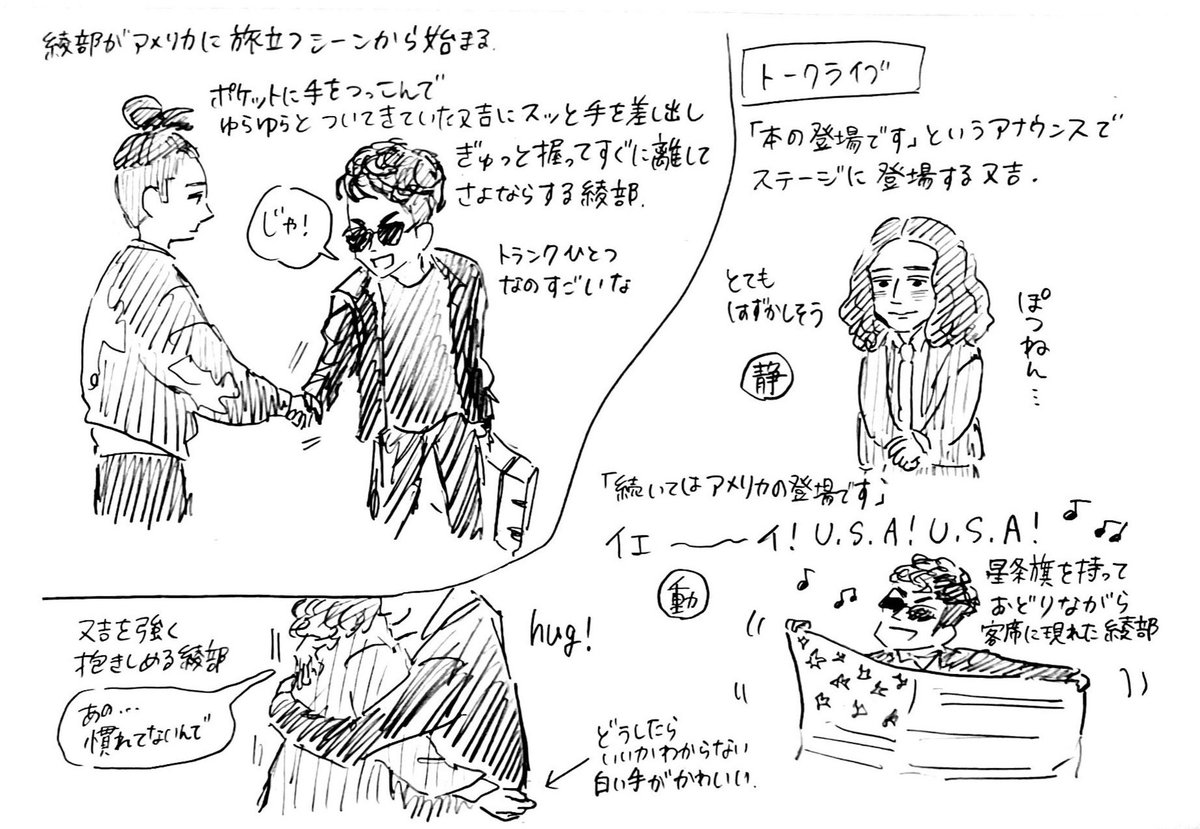 綾部がアメリカに旅立つシーンから始まる
ポケットに手をつっこんで
ゆらゆらと ついてきていた又吉にスッと手を差し出し
ぎゅっと握ってすぐに離して
さよならする綾部.
じゃ!
トランクひとつ
なのすごいな
トークライブ
「本の登場です」というアナウンスで
ステージに登場する又吉.
とても
はずかしそう
静
ぽつねん…
「続いてはアメリカの登場です」
イエ〜〜イ! U.S.A! U.S.A!
動
星条旗を持って
おどりながら
客席に現れた綾部
又吉を強く
抱きしめる綾部
あの…
慣れてないんで
hug!
どうしたら
いいかわからない
白い手がかわいい.